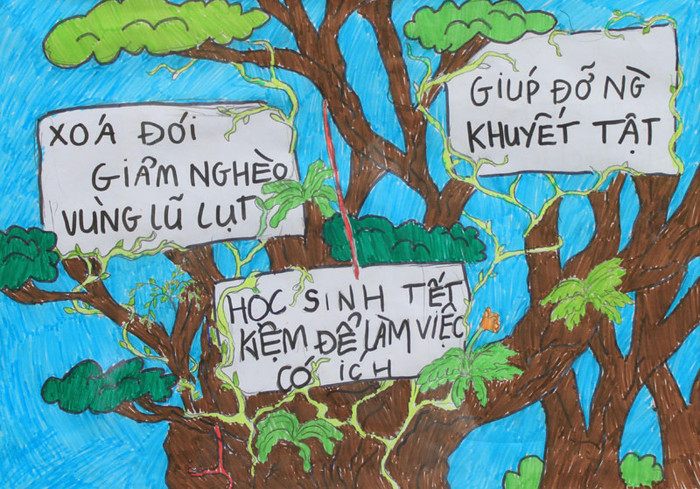 XOÁ ĐÓI
GIẢM NGHÈO
VÙNG LŨ LỤT
GIÚP ĐỠ NG̀
KHUYẾT TẬT
HỌC SINH TẾT
KIỆM ĐỂ LÀM VIỆC
CÓ ÍCH